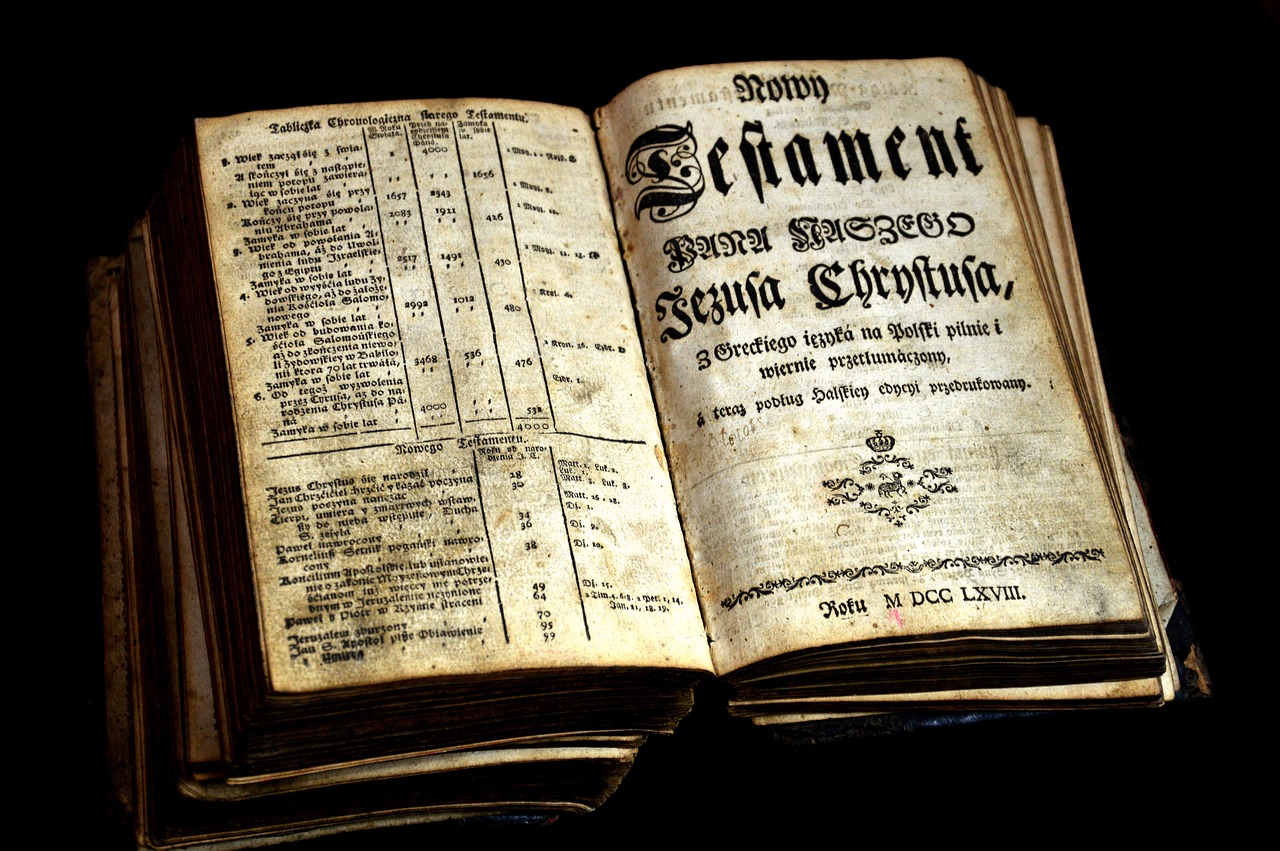 Tabliczka Chronologiczna starego Testamentu.
W Roku Swiata. Przed na- Zamyka
rodzeniem w sobie
Chrystusa lat.
Pana.
1. Wiek zaczął się z świa-
tem 1 4000 1 Moy. 1
A skończył się z nastąpie-
niem potopu zawiera-
iąc w sobie lat 1656
2. Wiek zaczyna się przy
końcu potopu 1657 2343
Kończy się przy powola-
niu Abrahama 2083 1921
Zamyka w sobie lat 426
3. Wiek od powolania A-
brahama, aż do Uwol-
nienia ludu Izraelskie-
go z Egiptu 2517 1491
Zamyka w sobie lat 430
4. Wiek od wyyścia ludu Zy-
dowskiego, aż do założe-
nia Kościoła Salomo-
nowego 2992 1012
Zamyka w sobie lat 480
5. Wiek od budowania ko-
ścioła Salomońskiego
aż do zkończenia niewo-
li Zydowskiey w Babilo-
nii ktora 70 lat trwała, 3468 536
Zamyka w sobie lat 476
6. Od tegoż wyzwolenia
przez Cyrusa, aż do na-
rodzenia Chrystusa Pa-
na 4000
Zamyka w sobie lat 532
4000
Nowego Testamentu.
Roku od naro-
dzenia J. C.
Jezus Chrystus się narodził
Jan Chrzciciel chrzcić y kazać poczyna 28
Jezus poczyna nauczać 30
Cierpi, umiera y zmartwych wstaw-
szy do nieba wstępuie, Ducha
S. zsyła 34
Paweł nawrocony 36
Korneliusz Setnik pogański nawro-
cony 38
Koncilium Apostolskie, lub ustanowie-
nie o zakonie Moyżeszowym Chrze-
ścianom już więcey nie potrze-
bnym w Jeruzalemie uczynione 49
Paweł y Piotr w Rzymie straceni 64
Jeruzalem zburzony 70
Jan S. Apostoł pisze Obiawienie 95
y umiera 99
Nowy
Testament
PANA NASZEGO
Jezusa Chrystusa,
Z Greckiego ięzyká na Polski pilnie i
wiernie przetłumáczony,
á teraz podług Halskiey edycyi przedrukowany.
Roku M DCC LXVIII.